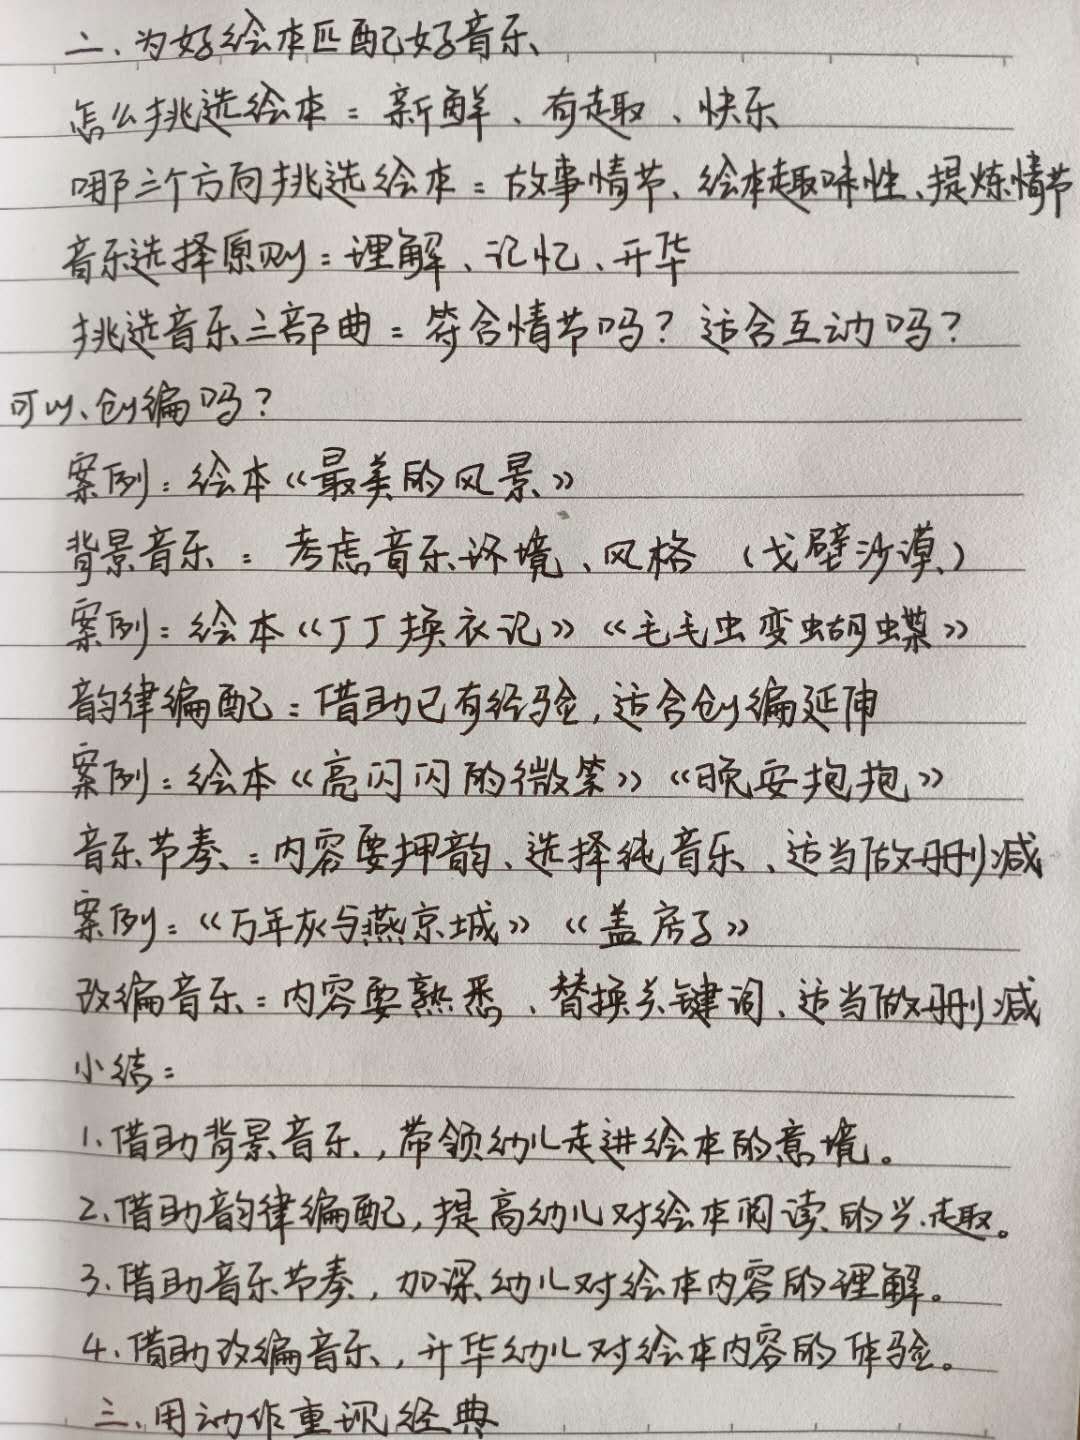 二、为好绘本匹配好音乐
怎么挑选绘本：新鲜、有趣、快乐
哪三个方向挑选绘本：故事情节、绘本趣味性、提炼情节
音乐选择原则：理解、记忆、升华
挑选音乐三部曲：符合情节吗？适合互动吗？
可以创编吗？
案例：绘本《最美的风景》
背景音乐：考虑音乐环境、风格（戈壁沙漠）
案例：绘本《丁丁换衣记》《毛毛虫变蝴蝶》
韵律编配：借助已有经验，适合创编延伸
案例：绘本《亮闪闪的微笑》《晚安抱抱》
音乐节奏：内容要押韵、选择纯音乐、适当做删减
案例：《万年灰与燕京城》《盖房子》
改编音乐：内容要熟悉、替换关键词、适当做删减
小结：
1.借助背景音乐，带领幼儿走进绘本的意境。
2.借助韵律编配，提高幼儿对绘本阅读的兴趣。
3.借助音乐节奏，加深幼儿对绘本内容的理解。
4.借助改编音乐，升华幼儿对绘本内容的体验。
三、用动作重现经典